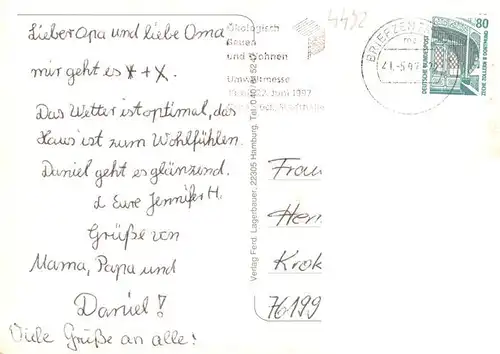 Lieber Opa und liebe Oma
mir geht es *+X.
Das Wetter ist optimal, das
Haus ist zum Wohlfühlen.
Daniel geht es glänzend.
Eure Jennifer H.
Grüße von
Mama, Papa und
Daniel!
Viele Grüße an alle!
Ökologisch
Bauen
und Wohnen
Umweltmesse
Juni 1997
Verlag Ferd. Lagerbauer, 22305 Hamburg, Tel. 040
4492
BRIEFZEN
80
DEUTSCHE BUNDESPOST
ZECHE ZOLLERN II DORTMUND
Frau
Her
Krok
76199